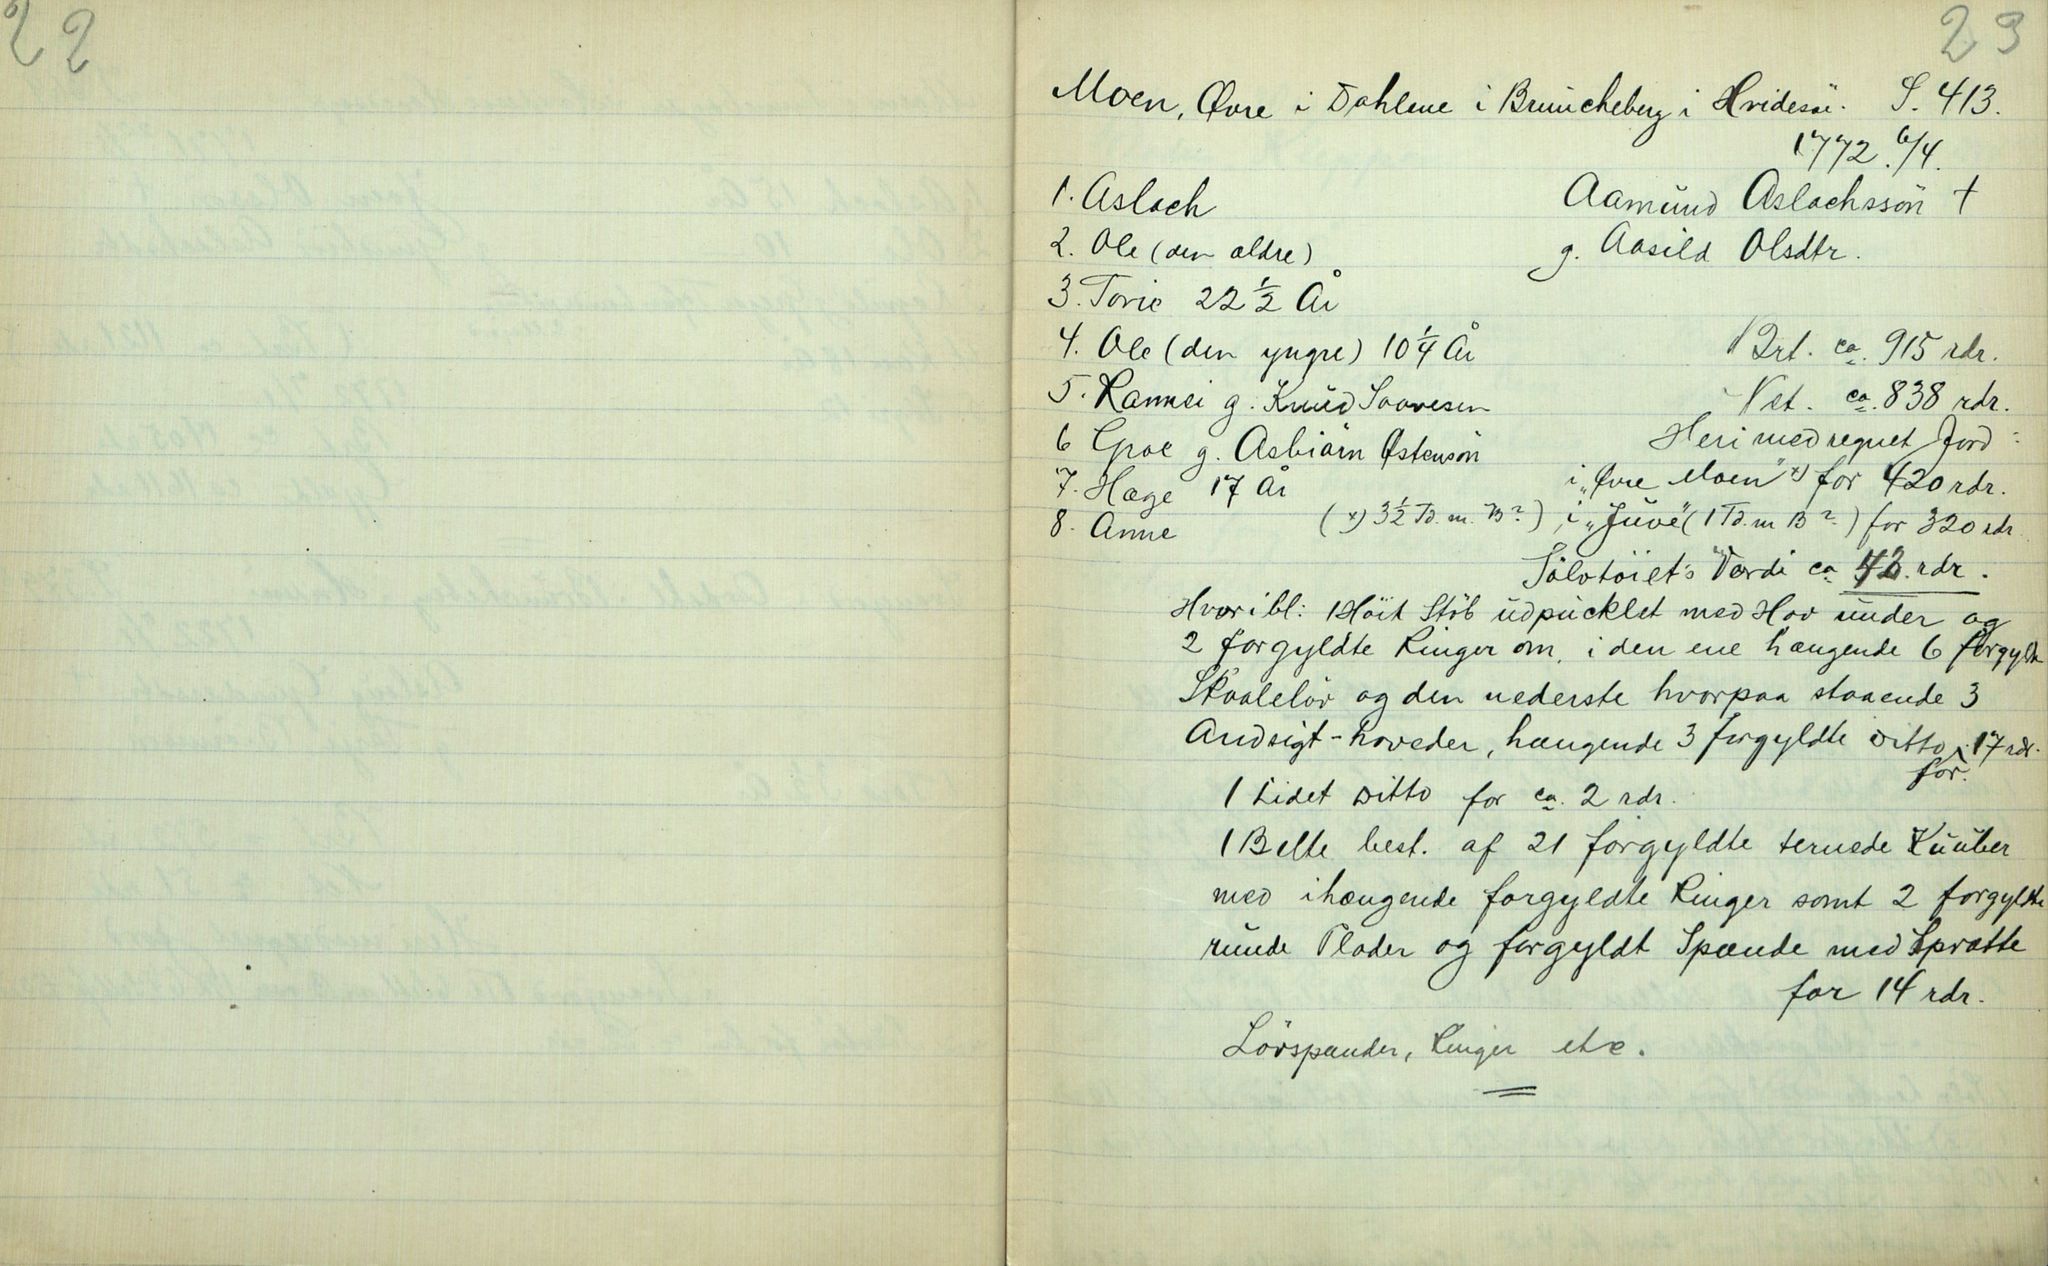 22
23
Moen, Øvre i Dahlene i Brüncheberg i Hvidesöe. S. 413.
1772 6/4.
1. Aslach
Aamünd Aslachssön †
2. Ole (den ældre)
g. Aasild Olsdtr.
3. Torie 22 1/2 År
4. Ole (den yngre) 10 1/4 År
Brt. ca. 915 rdr.
5. Rannei g. Knüd Saavesen
Net. ca. 838 rdr.
6 Groe g. Asbiörn Østensön
Heri medregnet Jord:
7. Hæge 17 År
i „Øvre Moen" x) for 420 rdr.
8. Anne
(x) 3 1/2 Td. m. B?) i „Jüve" (1 Td. m B?) for 320 rdr
Sölvtöiet's Værdi ca 42 rdr.
Hvoribl: 1 Höit Stöb üdpücklet med Hov ünder og
2 forgyldte Ringer om, i den ene hængende 6 forgyldte
Skaalelöv og den nederste hvorpaa staaende 3
Andsigt-hoveder, hængende 3 forgyldte ditto for 17 rdr.
1 Lidet ditto for ca. 2 rdr.
1 Belte best. af 21 forgyldte ternede Knüber
med ihængende forgyldte Ringer samt 2 forgyldte
ründe Plader og forgyldt Spænde med Sprætte
for 14 rdr.
Lövspænder, Ringer etc.